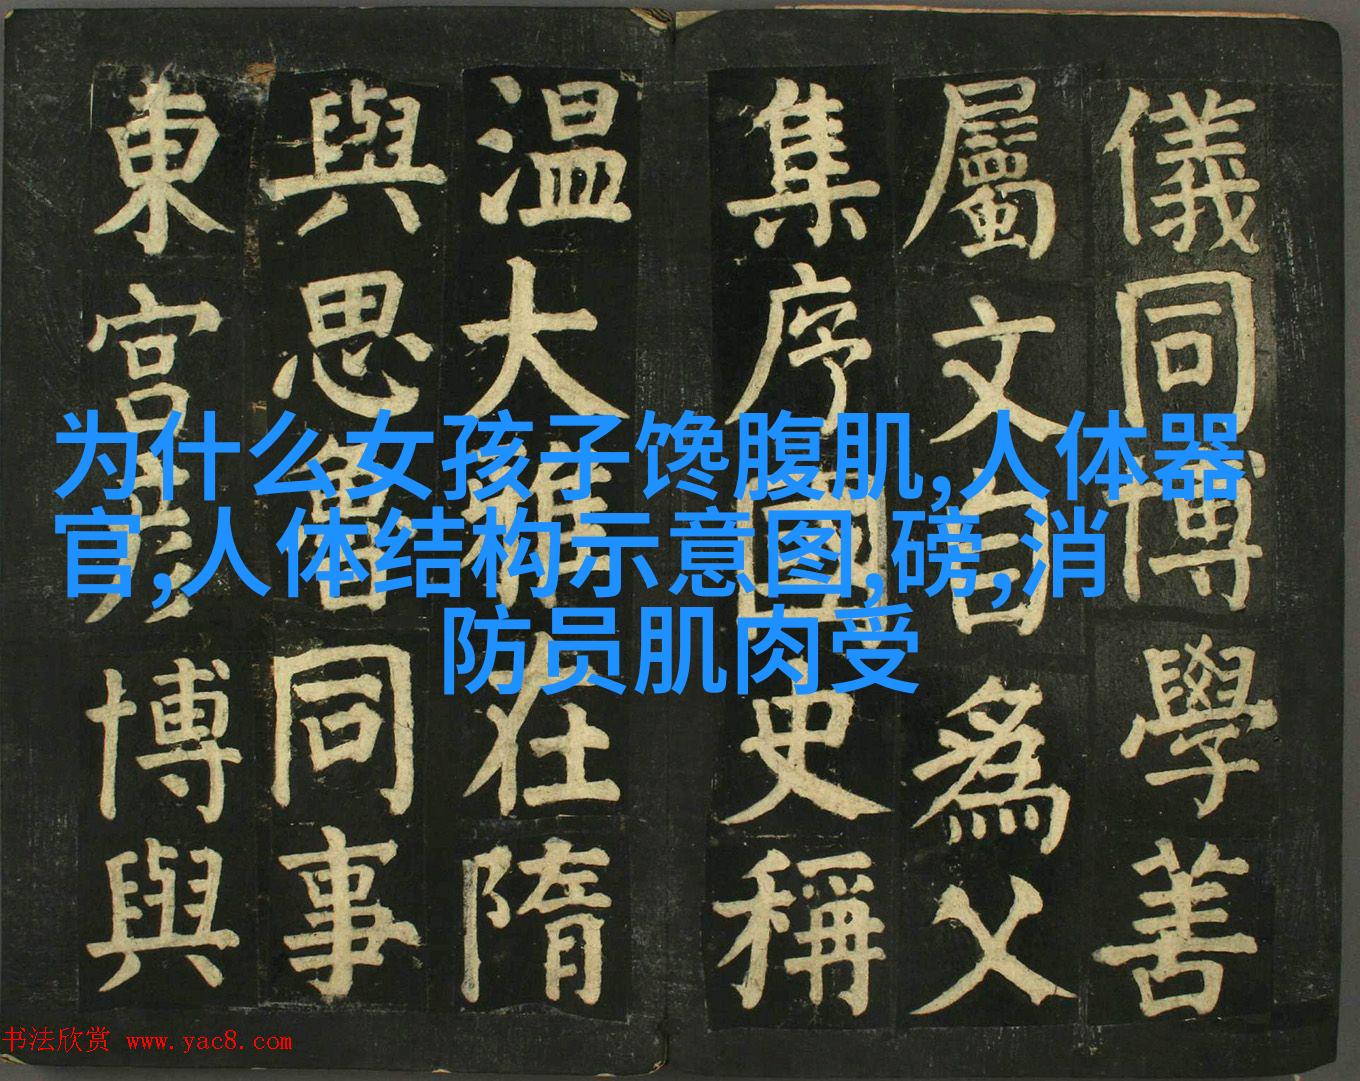 儀同博學善
屬文為父
集序國史稱
溫大雅在隋
與思魯同事
東宮彥博與
为什么女孩子馋腹肌,人体器
官,人体结构示意图,磅,消
防员肌肉受
书法欣赏 www.yac8.com